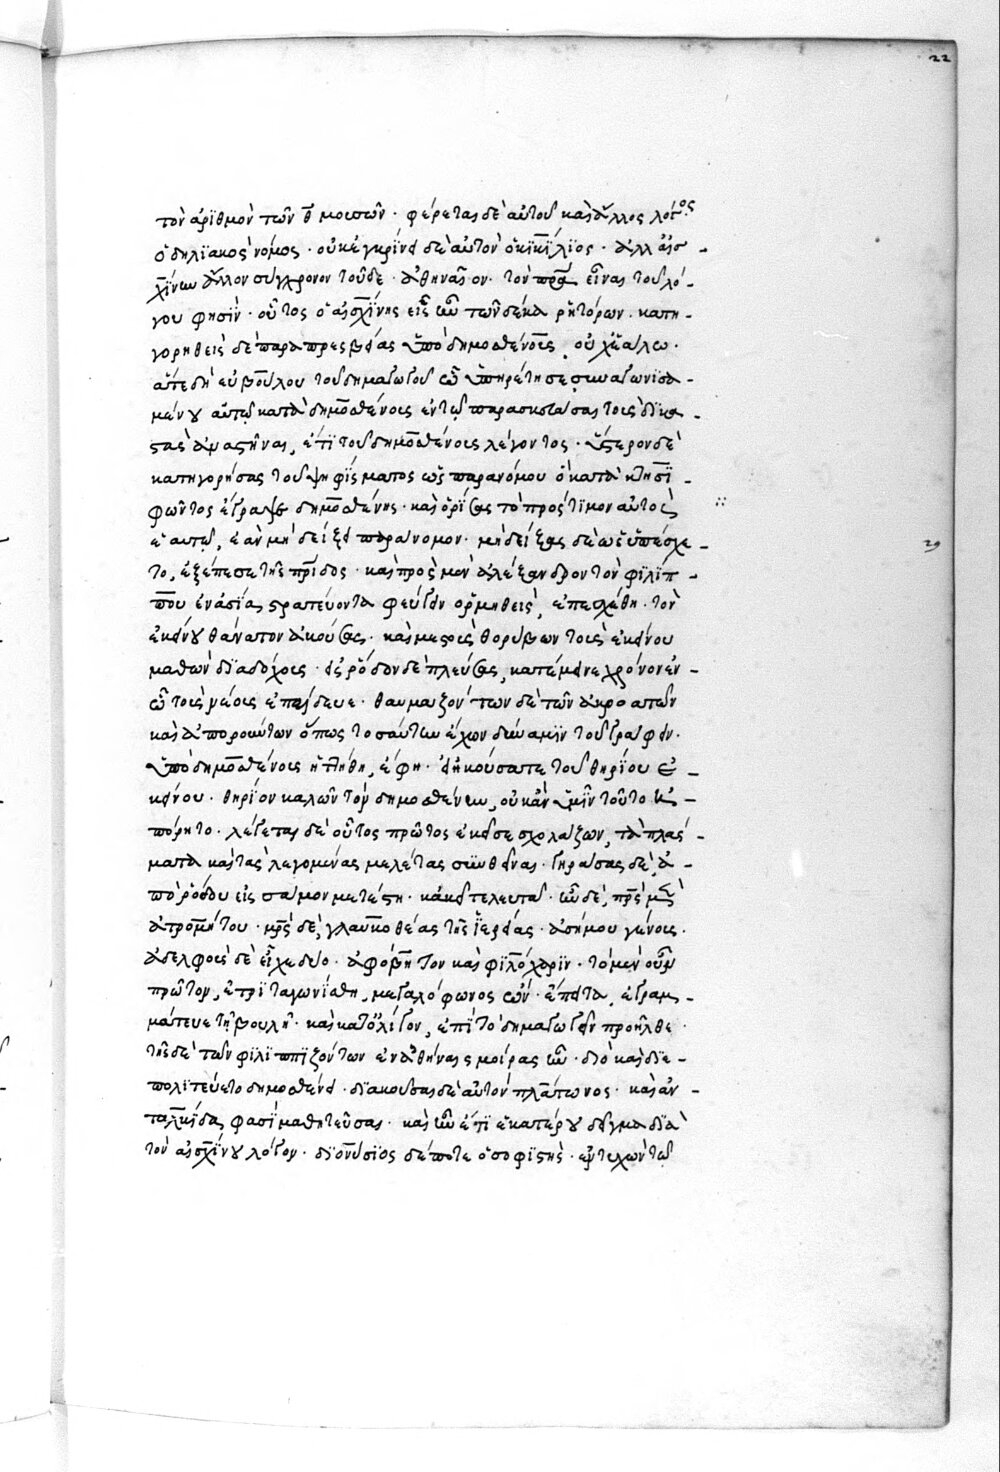 22
τὸν ἀρϊθμὸν τῶν θ μουσῶν · φέρεται δὲ αὐτοῦ καὶ ἄλλος λόγος
ὁ δηλϊακὸς νόμος · οὐκ ἐγκρίνει δὲ αὐτὸν ὁ κϊκϊλϊος · ἀλλ αἰσ -
χίνην ἄλλον σύγχρονον τοῦδε · ἀθηναῖον · τὸν πρα εἶναι τοῦ λό -
γου φησὶν · οὗτος ὁ αἰσχίνης εἷς ἦν τῶν δέκα ῥητόρων · κατη -
γορηθεὶς δὲ παραπρεσβείας ὑπὸ δημοσθένους, οὐχ ἑάλω ·
ἅτε δὴ εὐβούλου τοῦ δημαγωγοῦ ᾧ ὑπηρέτησε συναγωνϊσα -
μένου αὐτῷ κατὰ δημοσθένους ἐν τῷ παρασκευάσαι τοὺς δϊκα -
στὰς ἀναστῆναι, ἔτϊ τοῦ δημοσθένους λέγοντος · ὕστερον δὲ
κατηγορήσας τοῦ ψηφίσματος ὡς παρανόμου ὃ κατὰ κτησϊ -
φῶντος ἔγραψε δημοσθένης · καὶ ὁρίσας τὸ πρόστϊμον αὐτὸς
ἑαυτῷ, ἐὰν μὴ δείξει παράνομον · μὴ δείξας δὲ ὡς ὑπέσχε -
το, ἐξέπεσε τῆς πρίδος · καὶ πρὸς μὲν ἀλέξανδρον τὸν φϊλίπ -
που ἐν ἀσία στρατεύοντα φεύγειν ὁρμηθεὶς, ἐπεσχέθη · τὸν
ἐκείνου θάνατον ἀκούσας · καὶ μεστοὺς θορύβων τοὺς ἐκείνου
μαθὼν δϊαδόχους · εἰς ῥόδον δὲ πλεύσας, κατέμεινε χρόνον ἐν
ᾧ τοὺς νέους ἐπαίδευε · θαυμαζόντων δὲ τῶν ἀκροατῶν
καὶ ἀπορούντων ὅπως τοσαύτην ἔχων δύναμϊν τοῦ γράφειν ·
ὑπὸ δημοσθένους ἡττήθη, ἔφη · εἰ ἠκούσατε τοῦ θηρίου ἐ -
κείνου · θηρίον καλῶν τὸν δημοσθένην, οὐκ ἂν ὑμῖν τοῦτο ἠ -
πόρητο · λέγεται δὲ οὗτος πρῶτος ἐκεῖσε σχολάζων, τὰ πλάσ -
ματα καὶ τὰς λεγομένας μελέτας συνθεῖναι · γηράσας δὲ, ἀ -
πὸ ῥόδου εἰς σάμον μετέστη · κἀκεῖ τελευτᾶ · ἦν δὲ, πρς μὲν
ἀτρομήτου · μρς δὲ, γλαυκοθέας τῆς ἱερείας · ἀσήμου γένους ·
ἀδελφοὺς δὲ εἶχε δύο · ἀφόβητον καὶ φϊλόχαρϊν · τὸ μὲν οὖν
πρῶτον, ἐτρϊταγωνίσθη, μεγαλόφωνος ὤν · ἔπειτα, ἐγραμ -
μάτευε τῇ βουλῇ · καὶ κατ ὀλίγον, ἐπὶ τὸ δημαγωγεῖν προῆλθε ·
τῆς δὲ τῶν φϊλϊππϊζόντων ἐν ἀθήναις μοίρας ἦν · διὸ καὶ δϊε -
πολϊτεύετο δημοσθένει · δϊακοῦσαι δὲ αὐτὸν πλάτωνος · καὶ ἀν -
ταλκίδα φασϊ μαθητεῦσαι · καὶ ἦν ἔτϊ ἑκατέρου δεῖγμα δϊὰ
τὸν αἰσχίνου λόγον · δϊονύσϊος δέ ποτε ὁ σοφϊστὴς · ἐντυχὼν τῷ
29